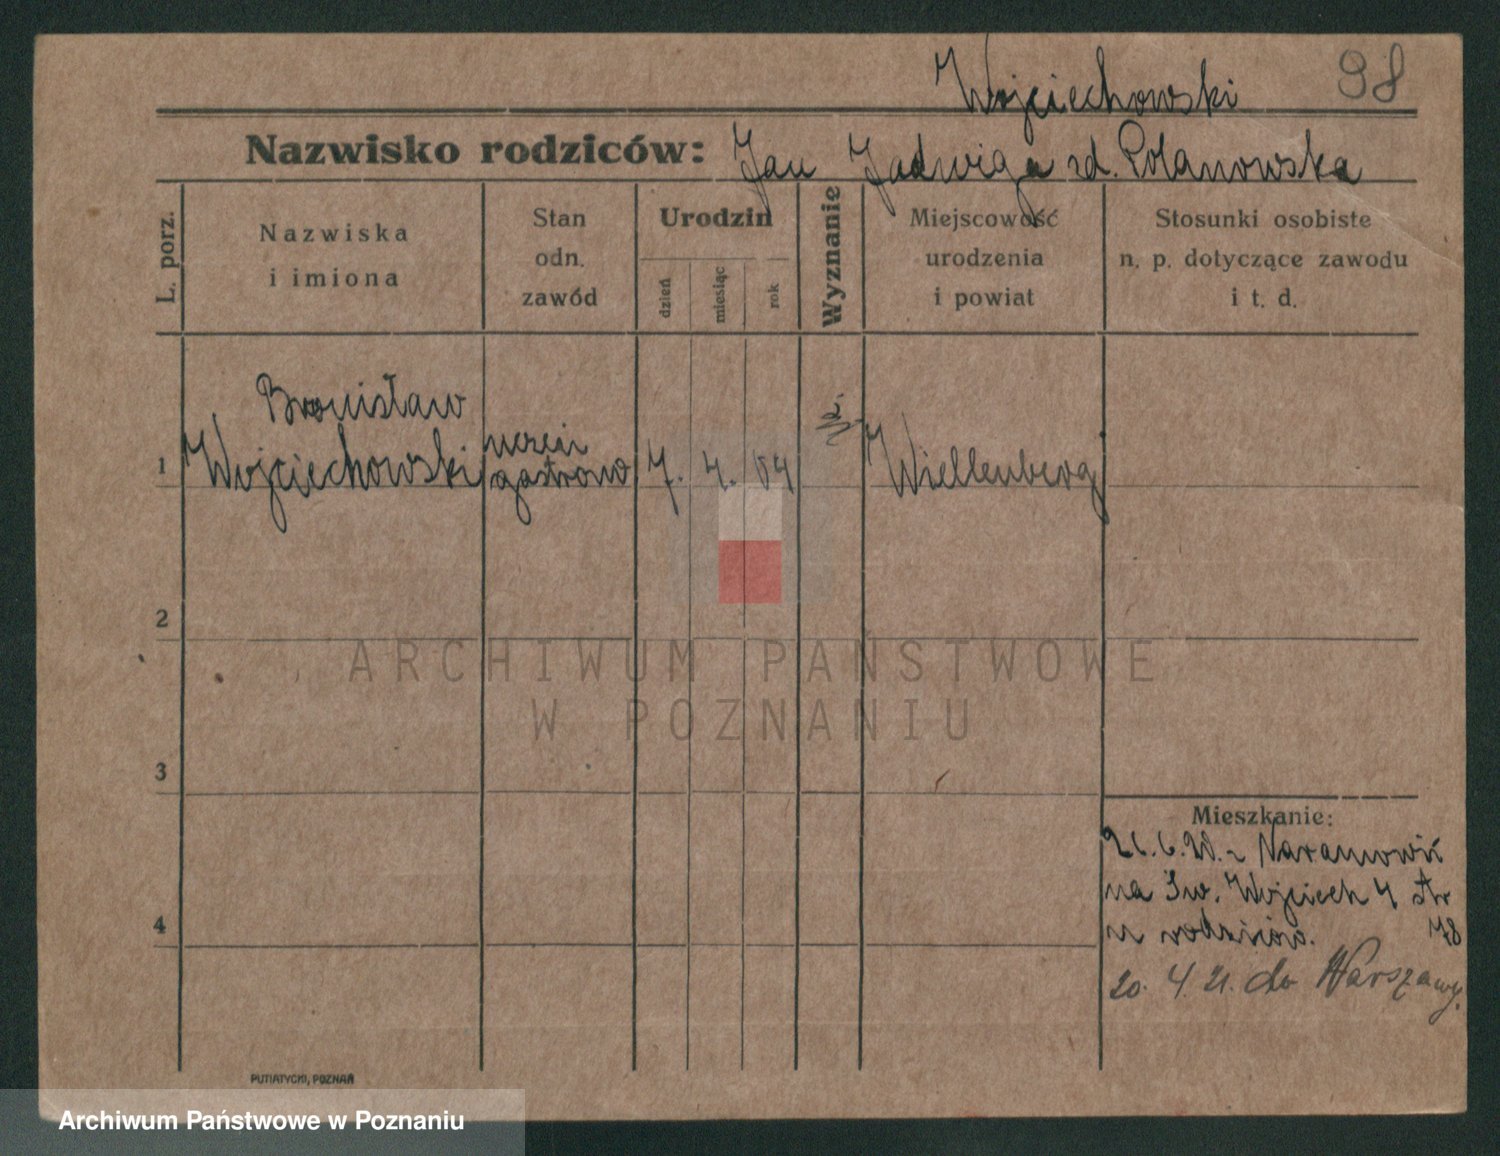 Wojciechowski 98
Nazwisko rodziców: Jan Jadwiga zd. Polanowska
L. porz.
Nazwiska
i imiona
Stan
odn.
zawód
Urodzin
dzień
miesiąc
rok
Wyznanie
Miejscowość
urodzenia
i powiat
Stosunki osobiste
n. p. dotyczące zawodu
i t. d.
Bronisław
1 Wojciechowski
uczeń
gastrono
7. 4. 04
Wiellenberg
2
3
4
Mieszkanie:
21.6.20. - Naramowic
na Św. Wojciech 4 str
u rodziców. 78
20. 4. 21. do Warszawy.
PUTIATYCKI, POZNAŃ
ARCHIWUM PAŃSTWOWE
W POZNANIU
Archiwum Państwowe w Poznaniu